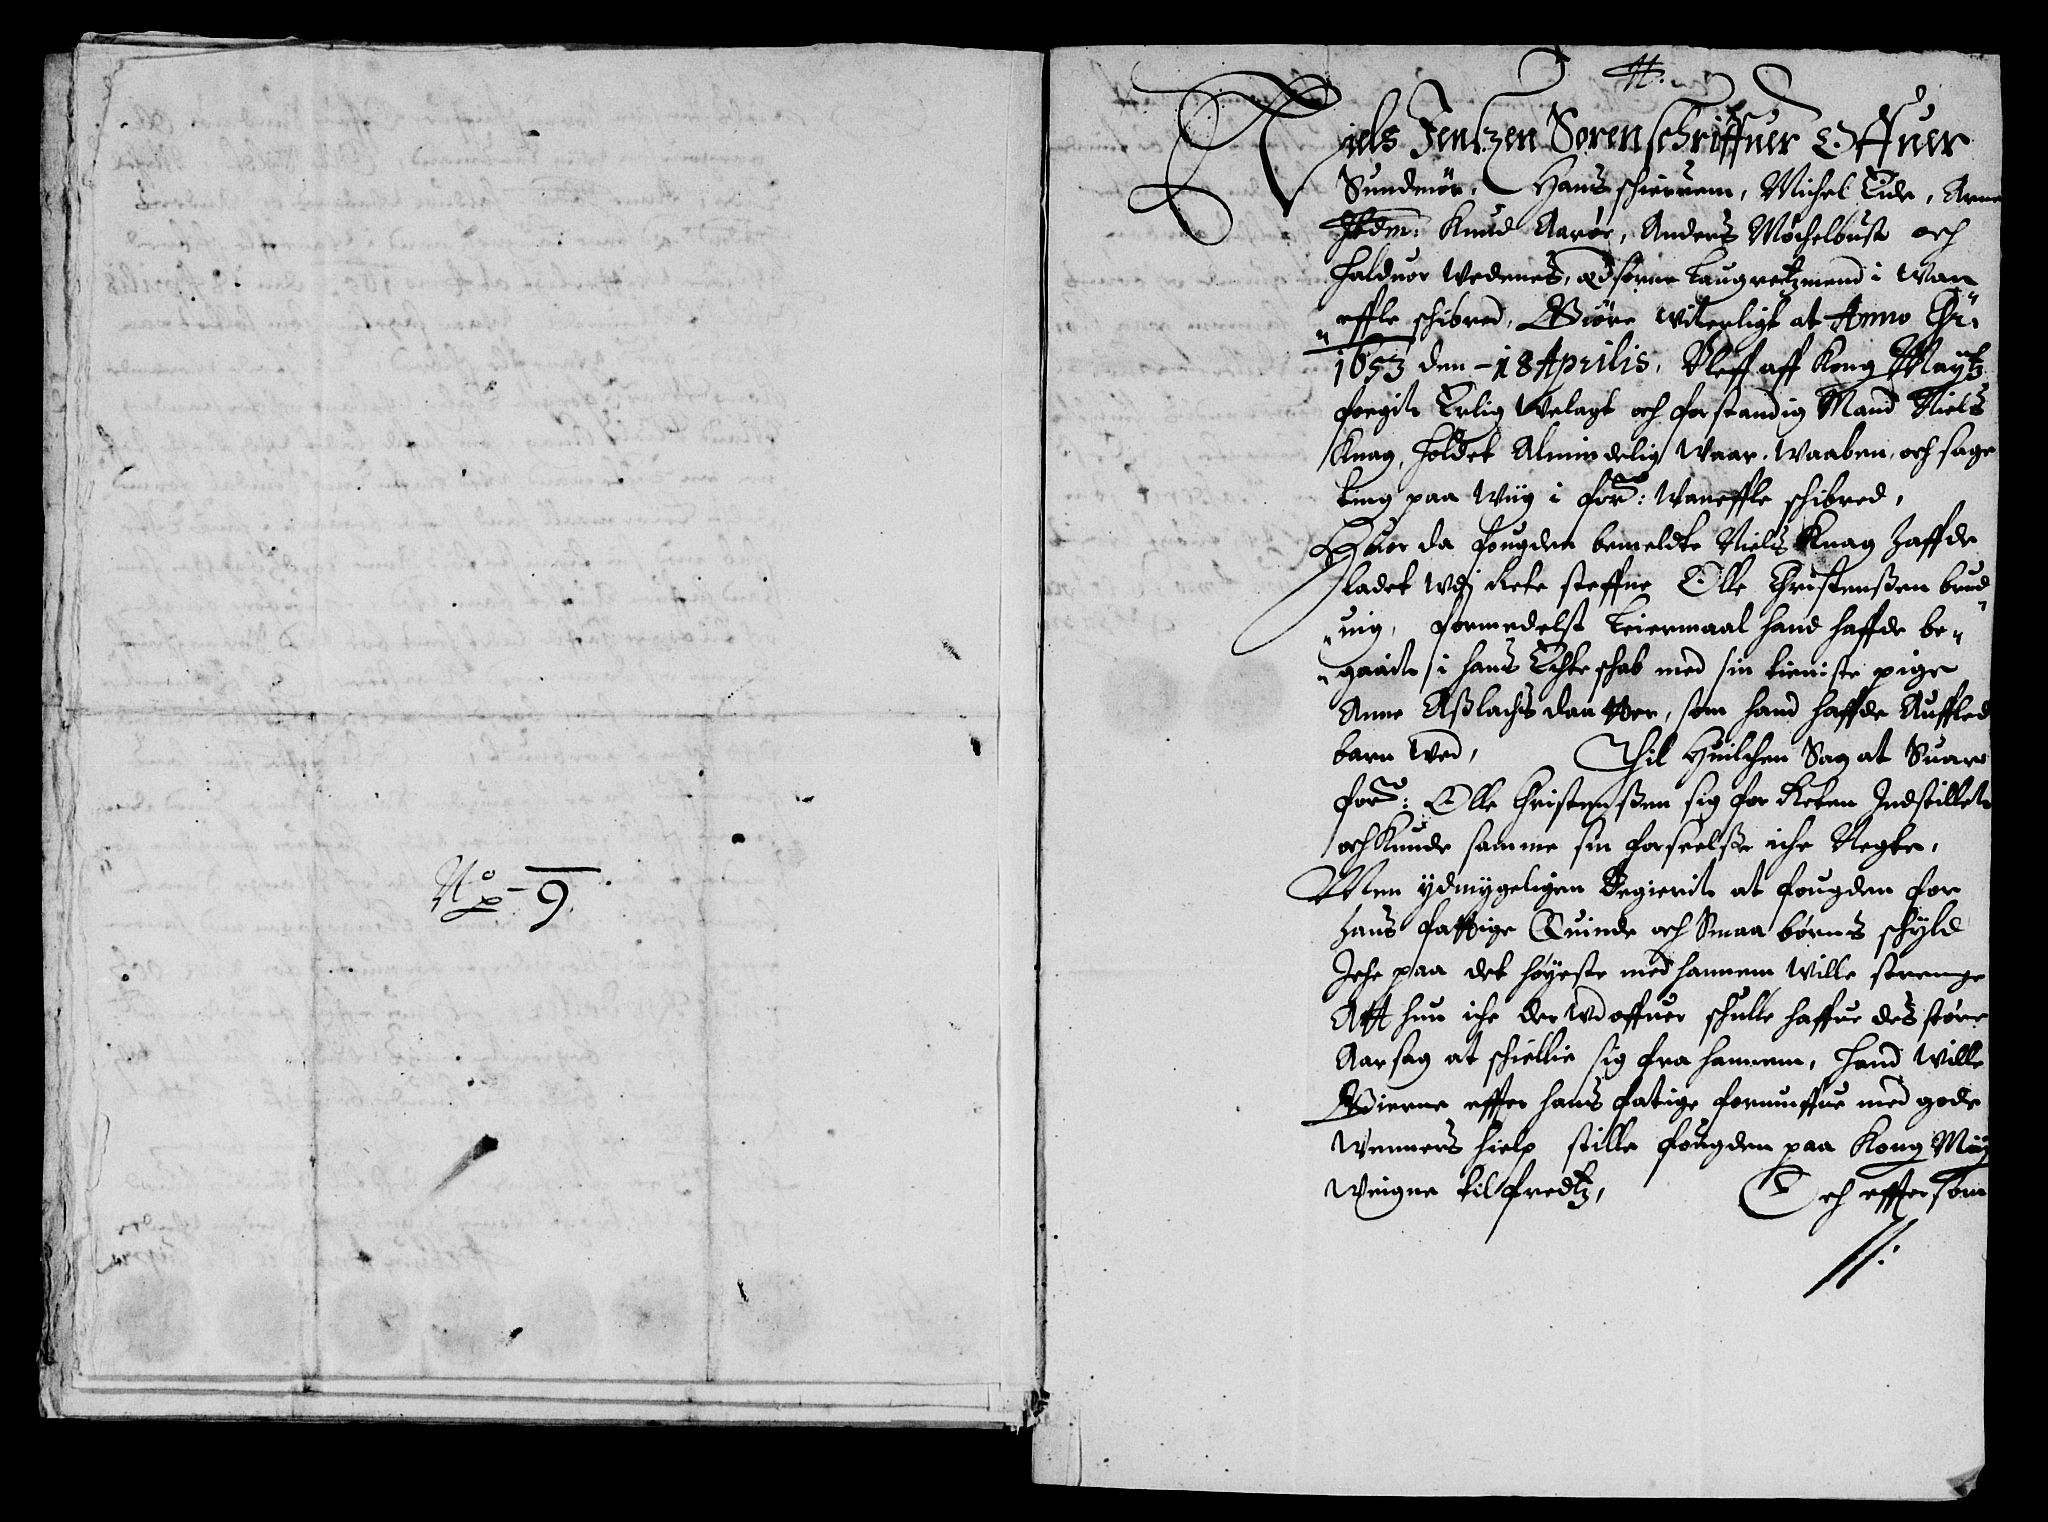 No 9.
H.
Niels Jentzen Sorenschriffuer Offuer
Sundmör, Hans schierrem, Michel Eide, Arne
Ibdm: Knud Aarøe, Anders Møchelbust och
Halduor Wedenes, Edsorne Laugretzmend i Wan
effle schibred, Giöre witerligt at Anno Chr:
1653 den 18 Aprilis, Bleff aff Kong Maytz
foegit Erlig Welagt och forstandig Mand Niels
Knag, Holdet Almindelig Waar, Waaben, och sage
ting paa Wiig i for: Waneffle schibred,
Huor da fougden bemeldte Niels Knag haffde
ladet wdj Rete steffne Olle Christenßen brud
uig, formedelst Leiermaal hand haffde be-
gaait i hans Echteschab med sin tieniste pige
Anne Aßlachs daatter, som hand haffde Aufflед
barn wed, Thil Huilchen Sag at Suare
for: Olle Christenßen sig for Reten Indstillet
och Kunde samme sin forseelße iche Negte,
Men ydmygeligen Begierit at fougden for
hans fattige Quinde och Smaa børns schyld
Iche paa det høyeste med hannem wille strenge
Att hun iche der wdoffuer schulle haffue des større
Aarsag at schiellie sig fra hannem, Hand wille
Gierne effter hans fatige formuffue med gode
Wenners hielp stille fougden paa Kong May
Weigne tilfredtz, Och efftersom
//: